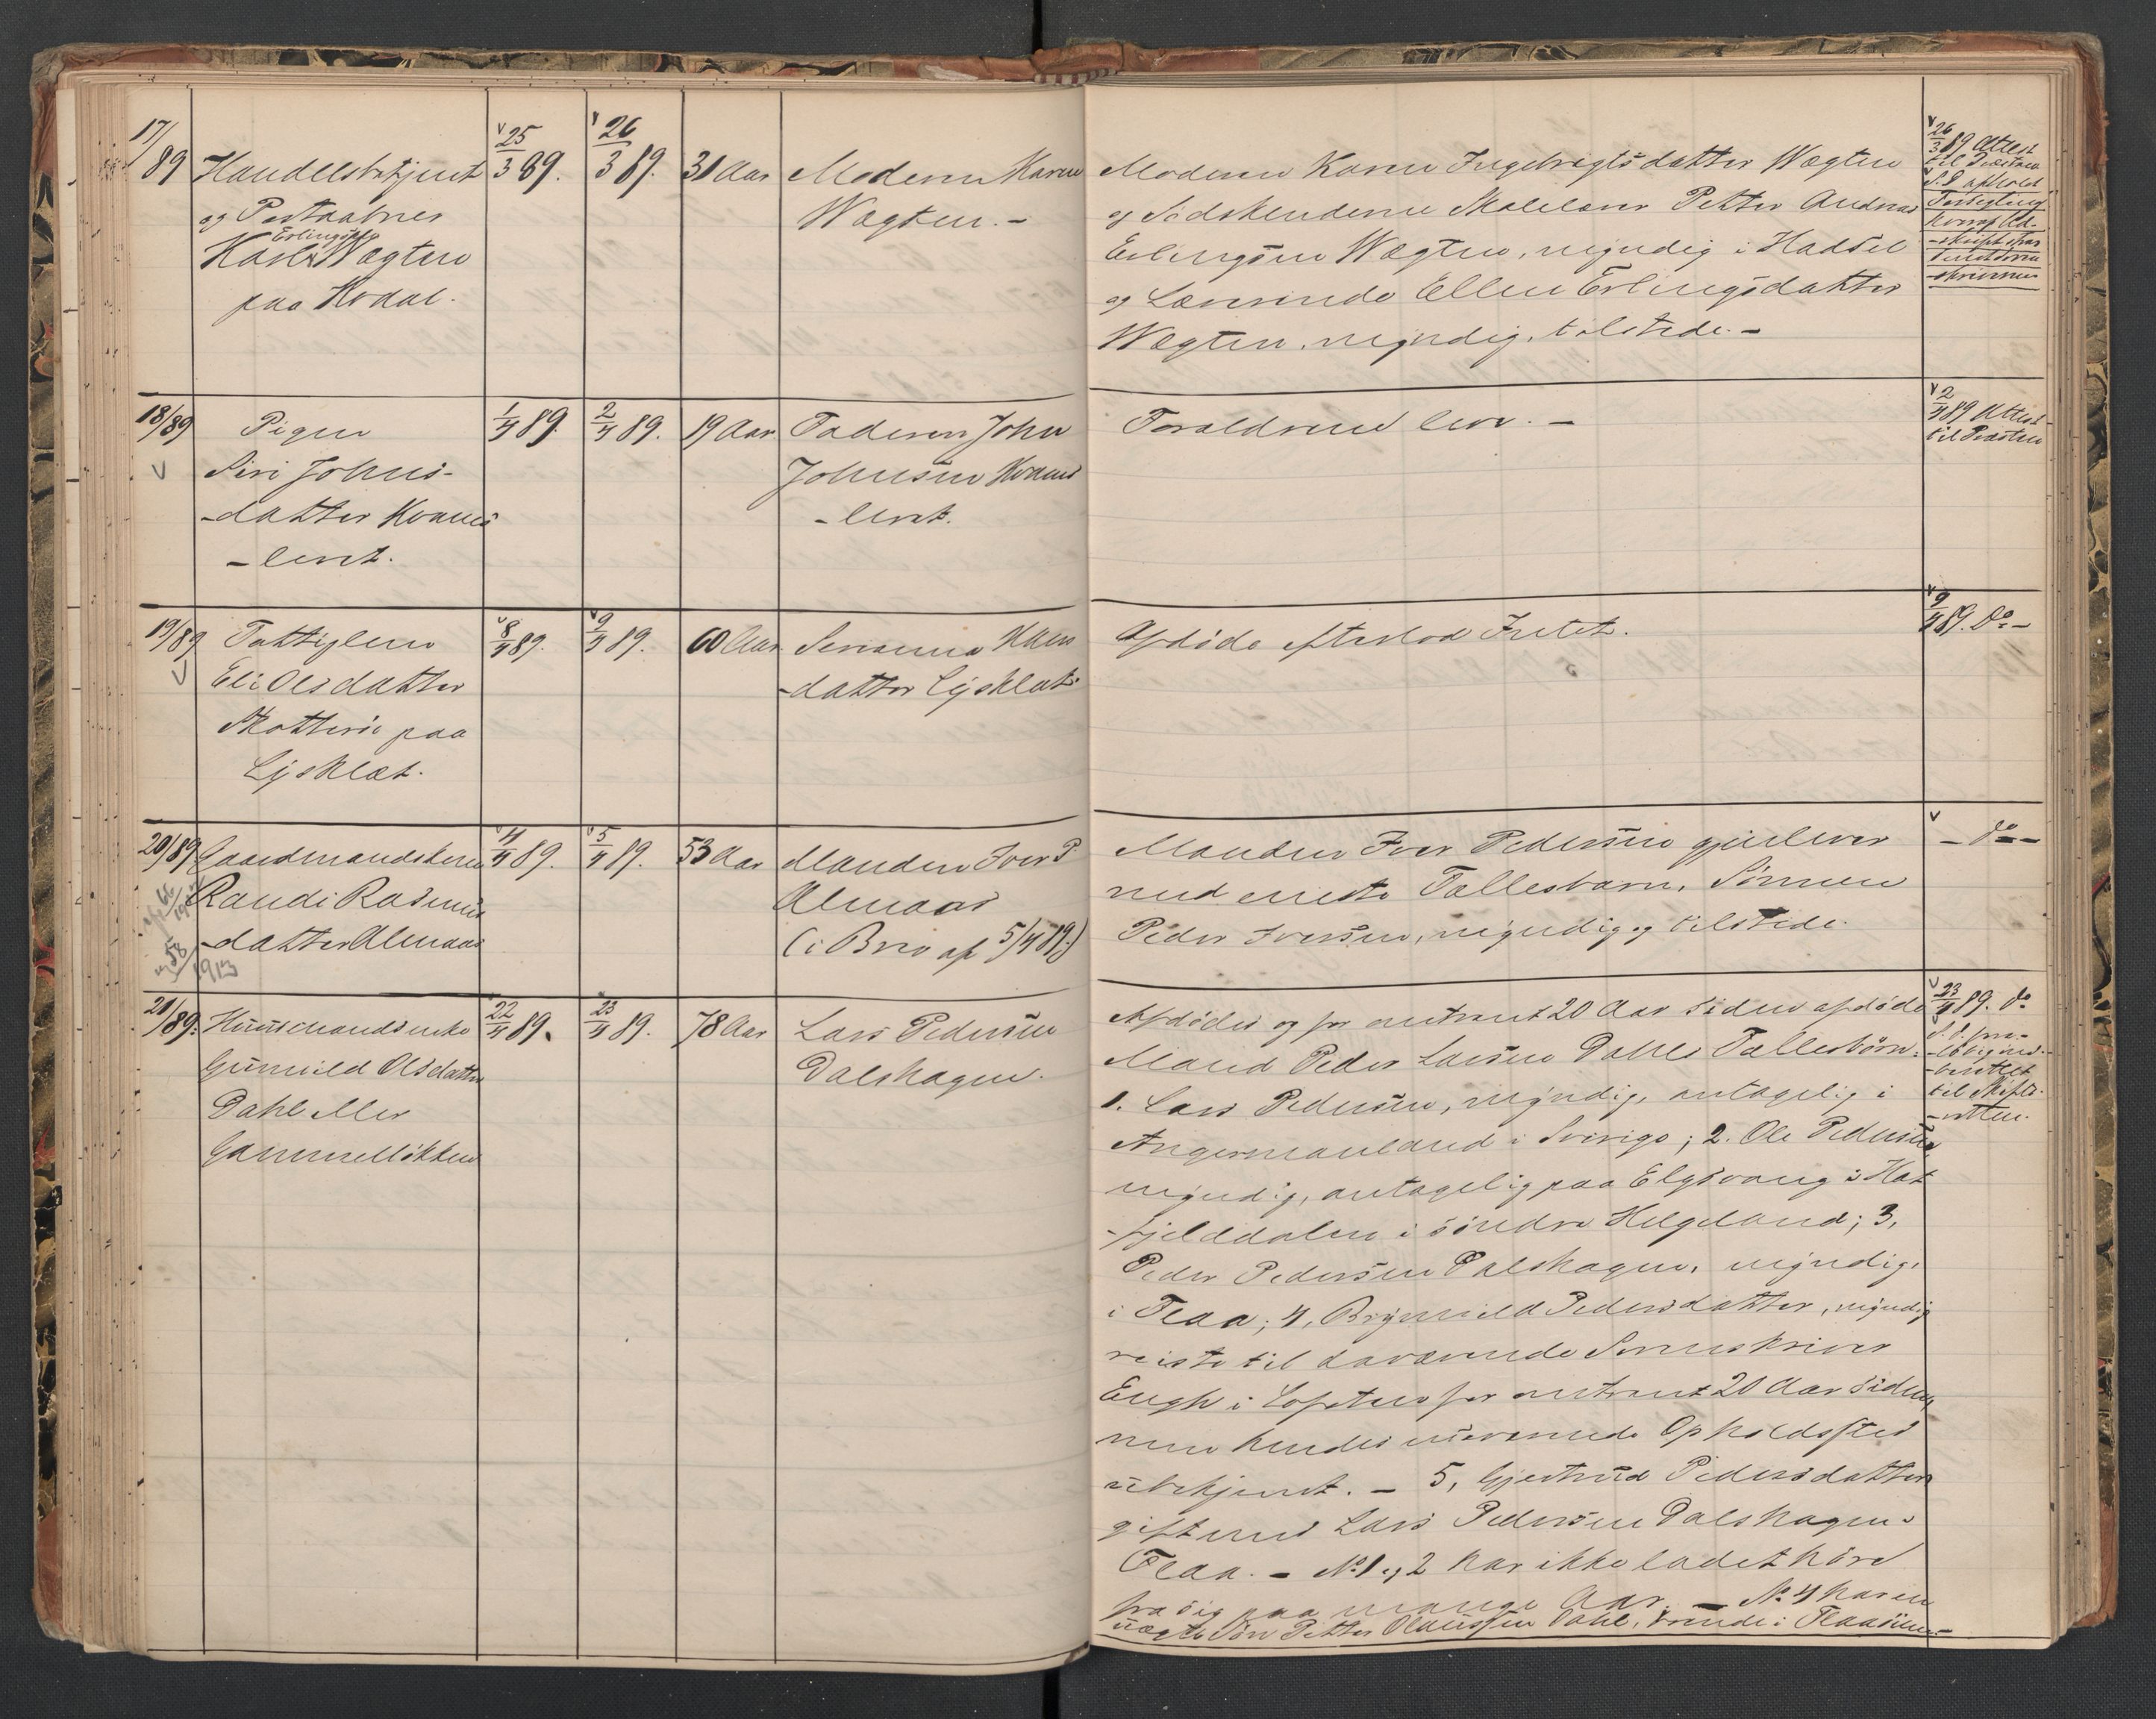 17/89
Handelsbetjent
og Postaabner
Erlingsen
Karl Wægten
paa Kvaal.
25/3 89.
26/3 89.
31 Aar
Moderen Karen
Wægten. -
Moderen Karen Ingebrigtsdatter Wægten
og Sødskenderne Skolelærer Petter Andreas
Erlingsen Wægten, myndig i Hadsel
og Lærerinde Ellen Erlingsdatter
Wægten, myndig, tilstede. -
26/3 89 Attest
til Præsten
S. D. afholdt
Forsegling
hvoraf Ud-
-skrift
Sorens-
-skriveren
18/89
Pigen
Siri Johns-
-datter Kvams
-lent.
1/4 89.
2/4 89.
19 Aar
Faderen John
Johnsen Kvams
-lent.
Forældrene lever. -
2/4 89 Attest
til Præsten
19/89
Fattiglem
Eli Olsdatter
paa
Ljosklet.
8/4 89.
9/4 89.
60 Aar
-datter Ljosklet
Afdøde efterlod Intet.
9/4 89. Do -
20/89
Gaardmandskone
Randi Rasmus
-datter Almaas
66/19
58/1913
4/4 89.
5/4 89.
53 Aar
Manden Iver P
Almaas
(i Brev af 5/4 89.)
Manden Iver Pedersen gjenlever
med eneste Fællesbarn, Sønnen
Peder Iversen, myndig og tilstede.
- do -
21/89.
Huusmandsenke
Gunnild Olsdatter
Dahl eller
Gammelløkken
22/4 89.
23/4 89.
78 Aar
Lars Pedersen
Dalshagen.
Afdødes og for omtrent 20 Aar siden afdøde
Mand Peder Larsen Dahls Fællesbørn:
1. Lars Pedersen, myndig, antagelig i
Angermanland i Sverige; 2. Ole Pedersen
myndig, antagelig paa Elgsvang i Hat
-fjelddalen i søndre Helgeland; 3,
Peder Pedersen Dalshagen, myndig,
i Flaa; 4, Brynnild Pedersdatter, myndig
reiste til daværende Sorenskriver
Engh i Lofoten for omtrent 20 Aar siden,
men hendes nuværende Opholdssted
ubekjendt. - 5, Gjertrud Pedersdatter
gift med Lars Pedersen Dalshagen i
Flaa. - No 1 og 2 har ikke ladet høre
fra sig paa mange Aar. - No 4 har en
uægte Søn Petter Olaussen Dahl, boende i Flaa
23/4 89. do
S. D. fore-
til Skifte-
-retten.